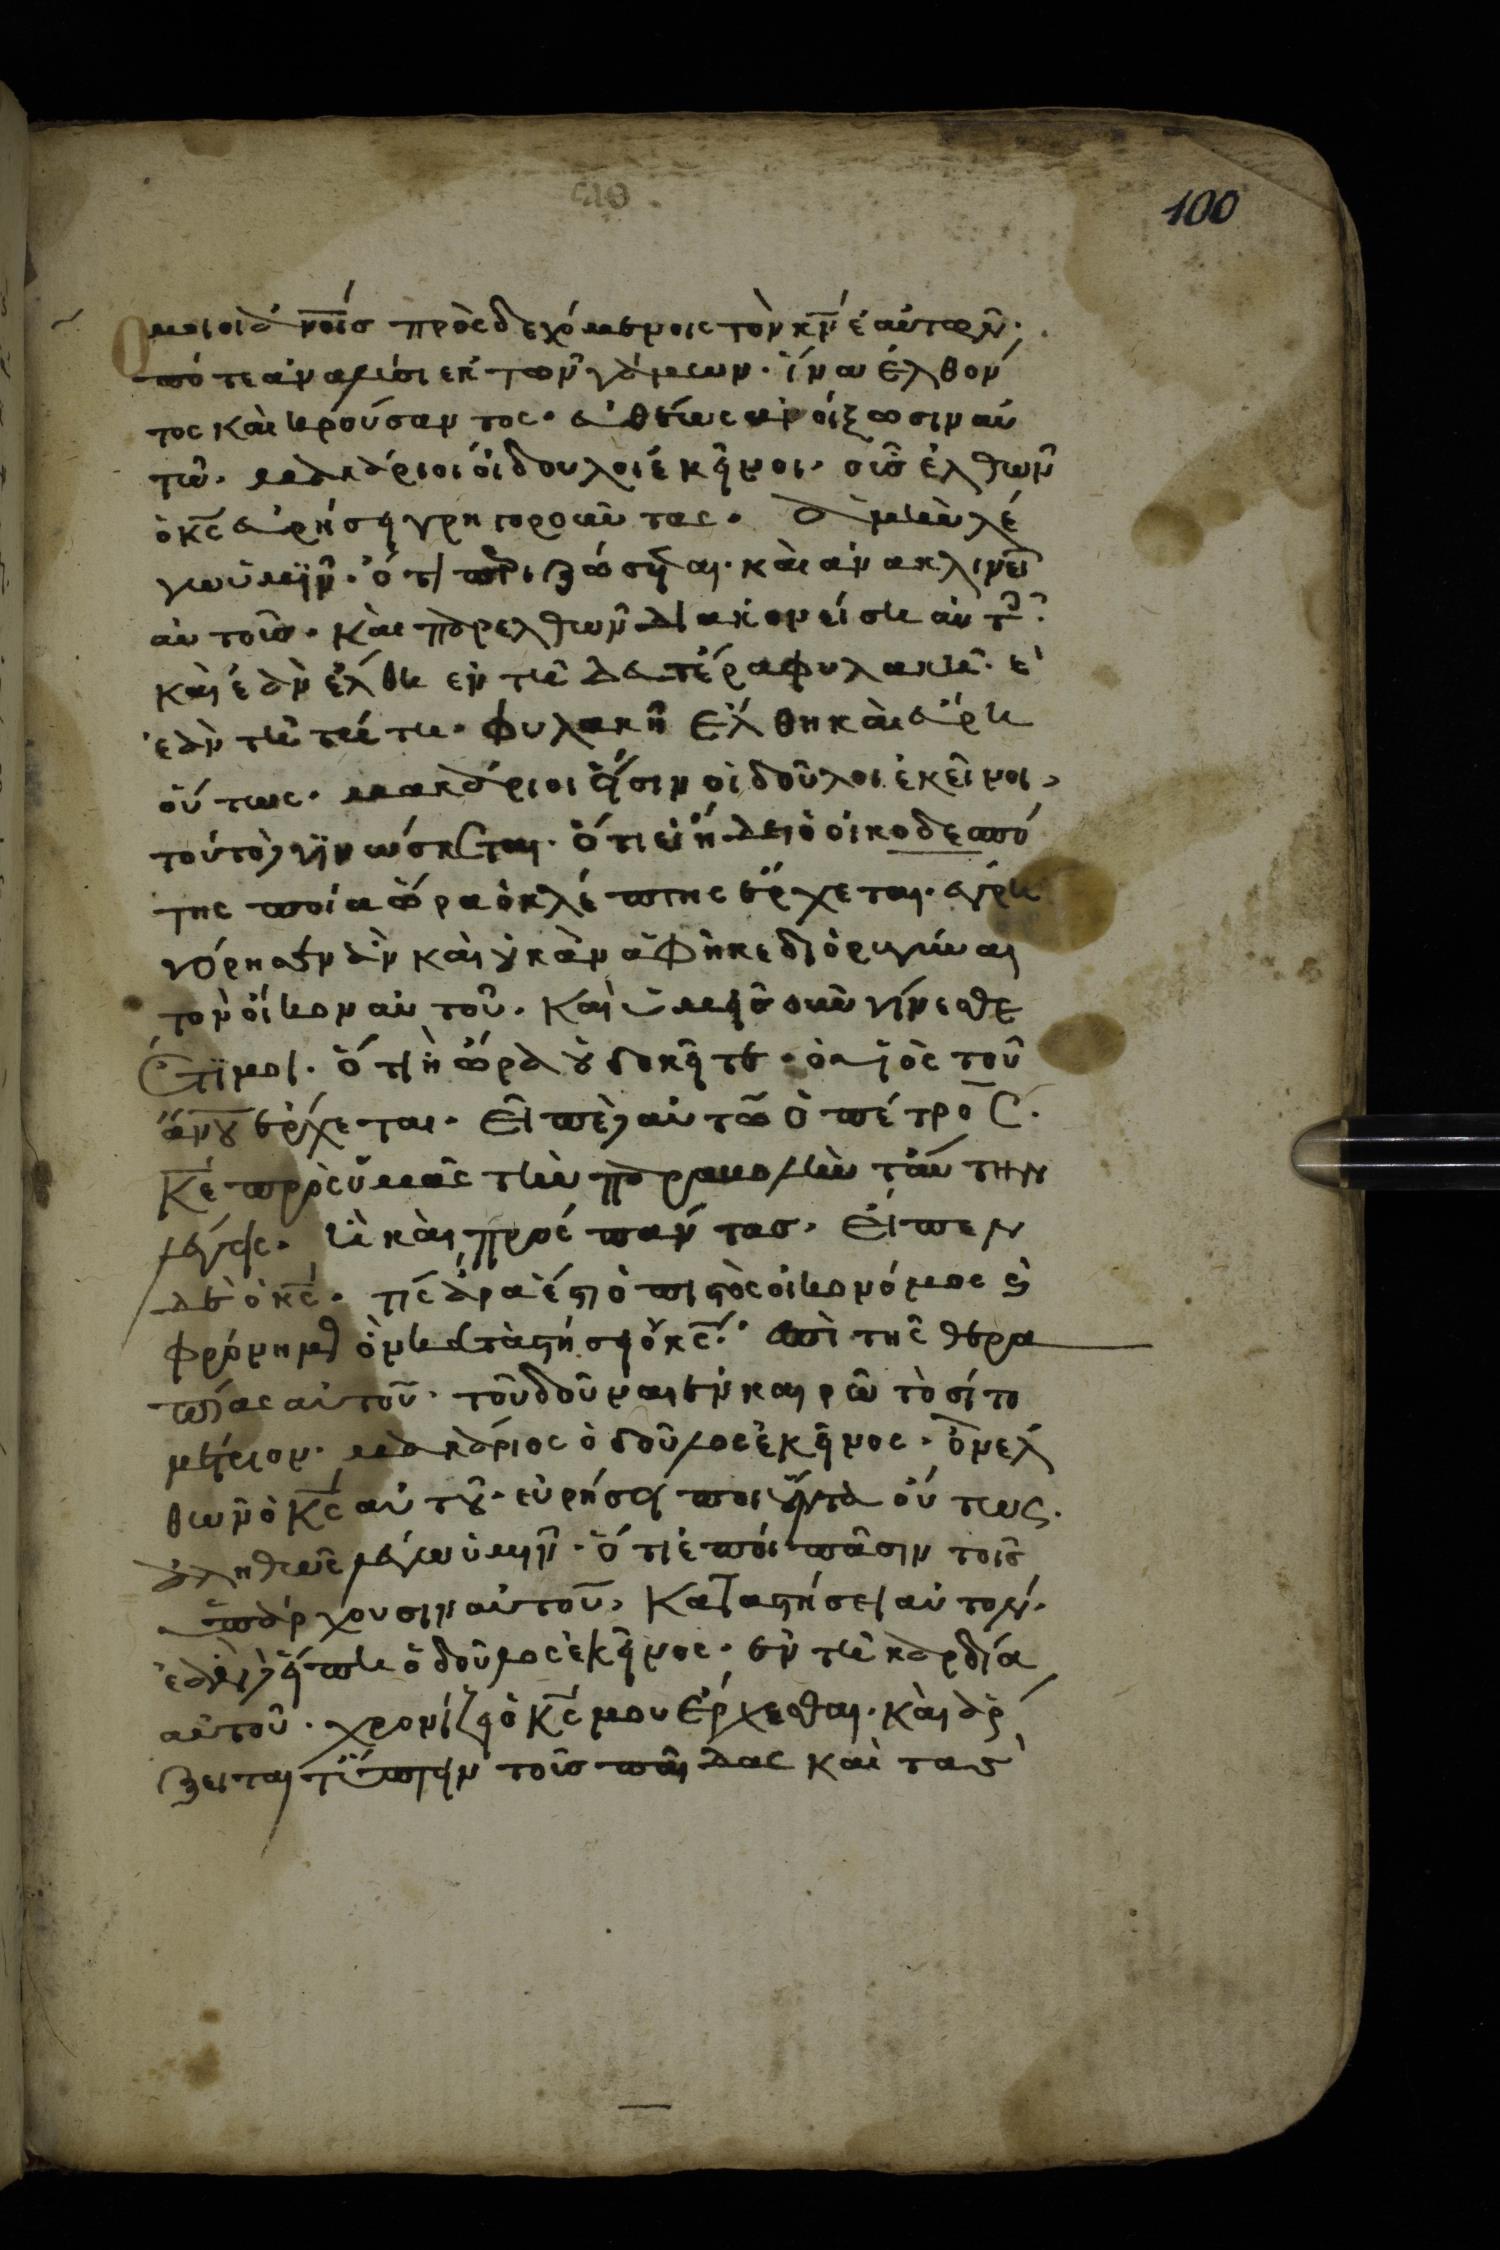 100
Ὅμοιοι ἀνοῖσ προσδεχόμενοις τὸν κν ἑαυτῶν·
πότε ἀναλύσι ἐκ τῶν γάμων· ἵνα ἐλθόν
τος καὶ κρούσαντος· εὐθέως ἀνοίξωσιν αὐ
τῶ· μακάριοι οἱ δουλοι ἐκῆνοι· οὓσ ἐλθὼν
ὁ κς εὑρήση γρηγοροῦντας· ἀμὴν λέ
γω ὑμῖν· ὅτι περιζώσηται· καὶ ἀνακλινεῖ
αὐτοῖσ· καὶ παρελθὼν διακονείση αὐτ·
καὶ ἐὰν ἔλθη ἐν τῆ δευτέρα φυλακῆ· κ
ἐὰν τῆ τρίτη· φυλακῆ ἔλθη καὶ εὕρη
οὕτως· μακάριοι εἰσιν οἱ δοῦλοι ἐκεῖνοι·
τούτο γινώσκεται· ὅτι εἰ ἤδει ὁ οἰκοδεσπό
της ποία ὥρα ὁ κλέπτης ἔρχεται· ἐγρη
γόρησεν ἂν καὶ οὐκ ἂν ἀφῆκε διορυγῆναι
τὸν οἶκον αὐτοῦ· καὶ ὑμῆσ οὖν γίνεσθε
ἕτοιμοι· ὅτι ἡ ὥρα οὐ δοκῆτε· ὁ υἱὸς τοῦ
ἀνου ἔρχεται· εἶπε αὐτῶ ὁ πέτρος·
κε πρὸς ὑμᾶς τὴν παραβολὴν ταύτην
λέγης· ἢ καὶ πρός πάντασ· εἶπεν
δὲ ὁ κς· τίς ἄρα ἐστι ὁ πιστὸς οἰκονόμος κ
φρόνημος ὃν καταστήση ὁ κς· ἐπὶ τῆς θερα
πείας αὐτοῦ· τοῦ δοῦναι ἐν καιρῶ τὸ σίτο
μέτριον· μακάριος ὁ δοῦλος ἐκῆνος· ὃν ἐλ
θὼν ὁ κς αὐτοῦ· εὑρήσει ποιοῦντα οὕτως·
ἀληθῶς λέγω ὑμῖν· ὅτι ἐπὶ πᾶσιν τοῖσ
ὑπάρχουσιν αὐτοῦ· καταστήσει αὐτον·
ἐὰν εἴπη ὁ δοῦλος ἐκῆνος· ἐν τῆ καρδία
αὐτοῦ· χρονίζη ὁ κς μου ἔρχεσθαι· καὶ ἄρ
ξεται τύπτην τοῖσ παῖδας καὶ τασ